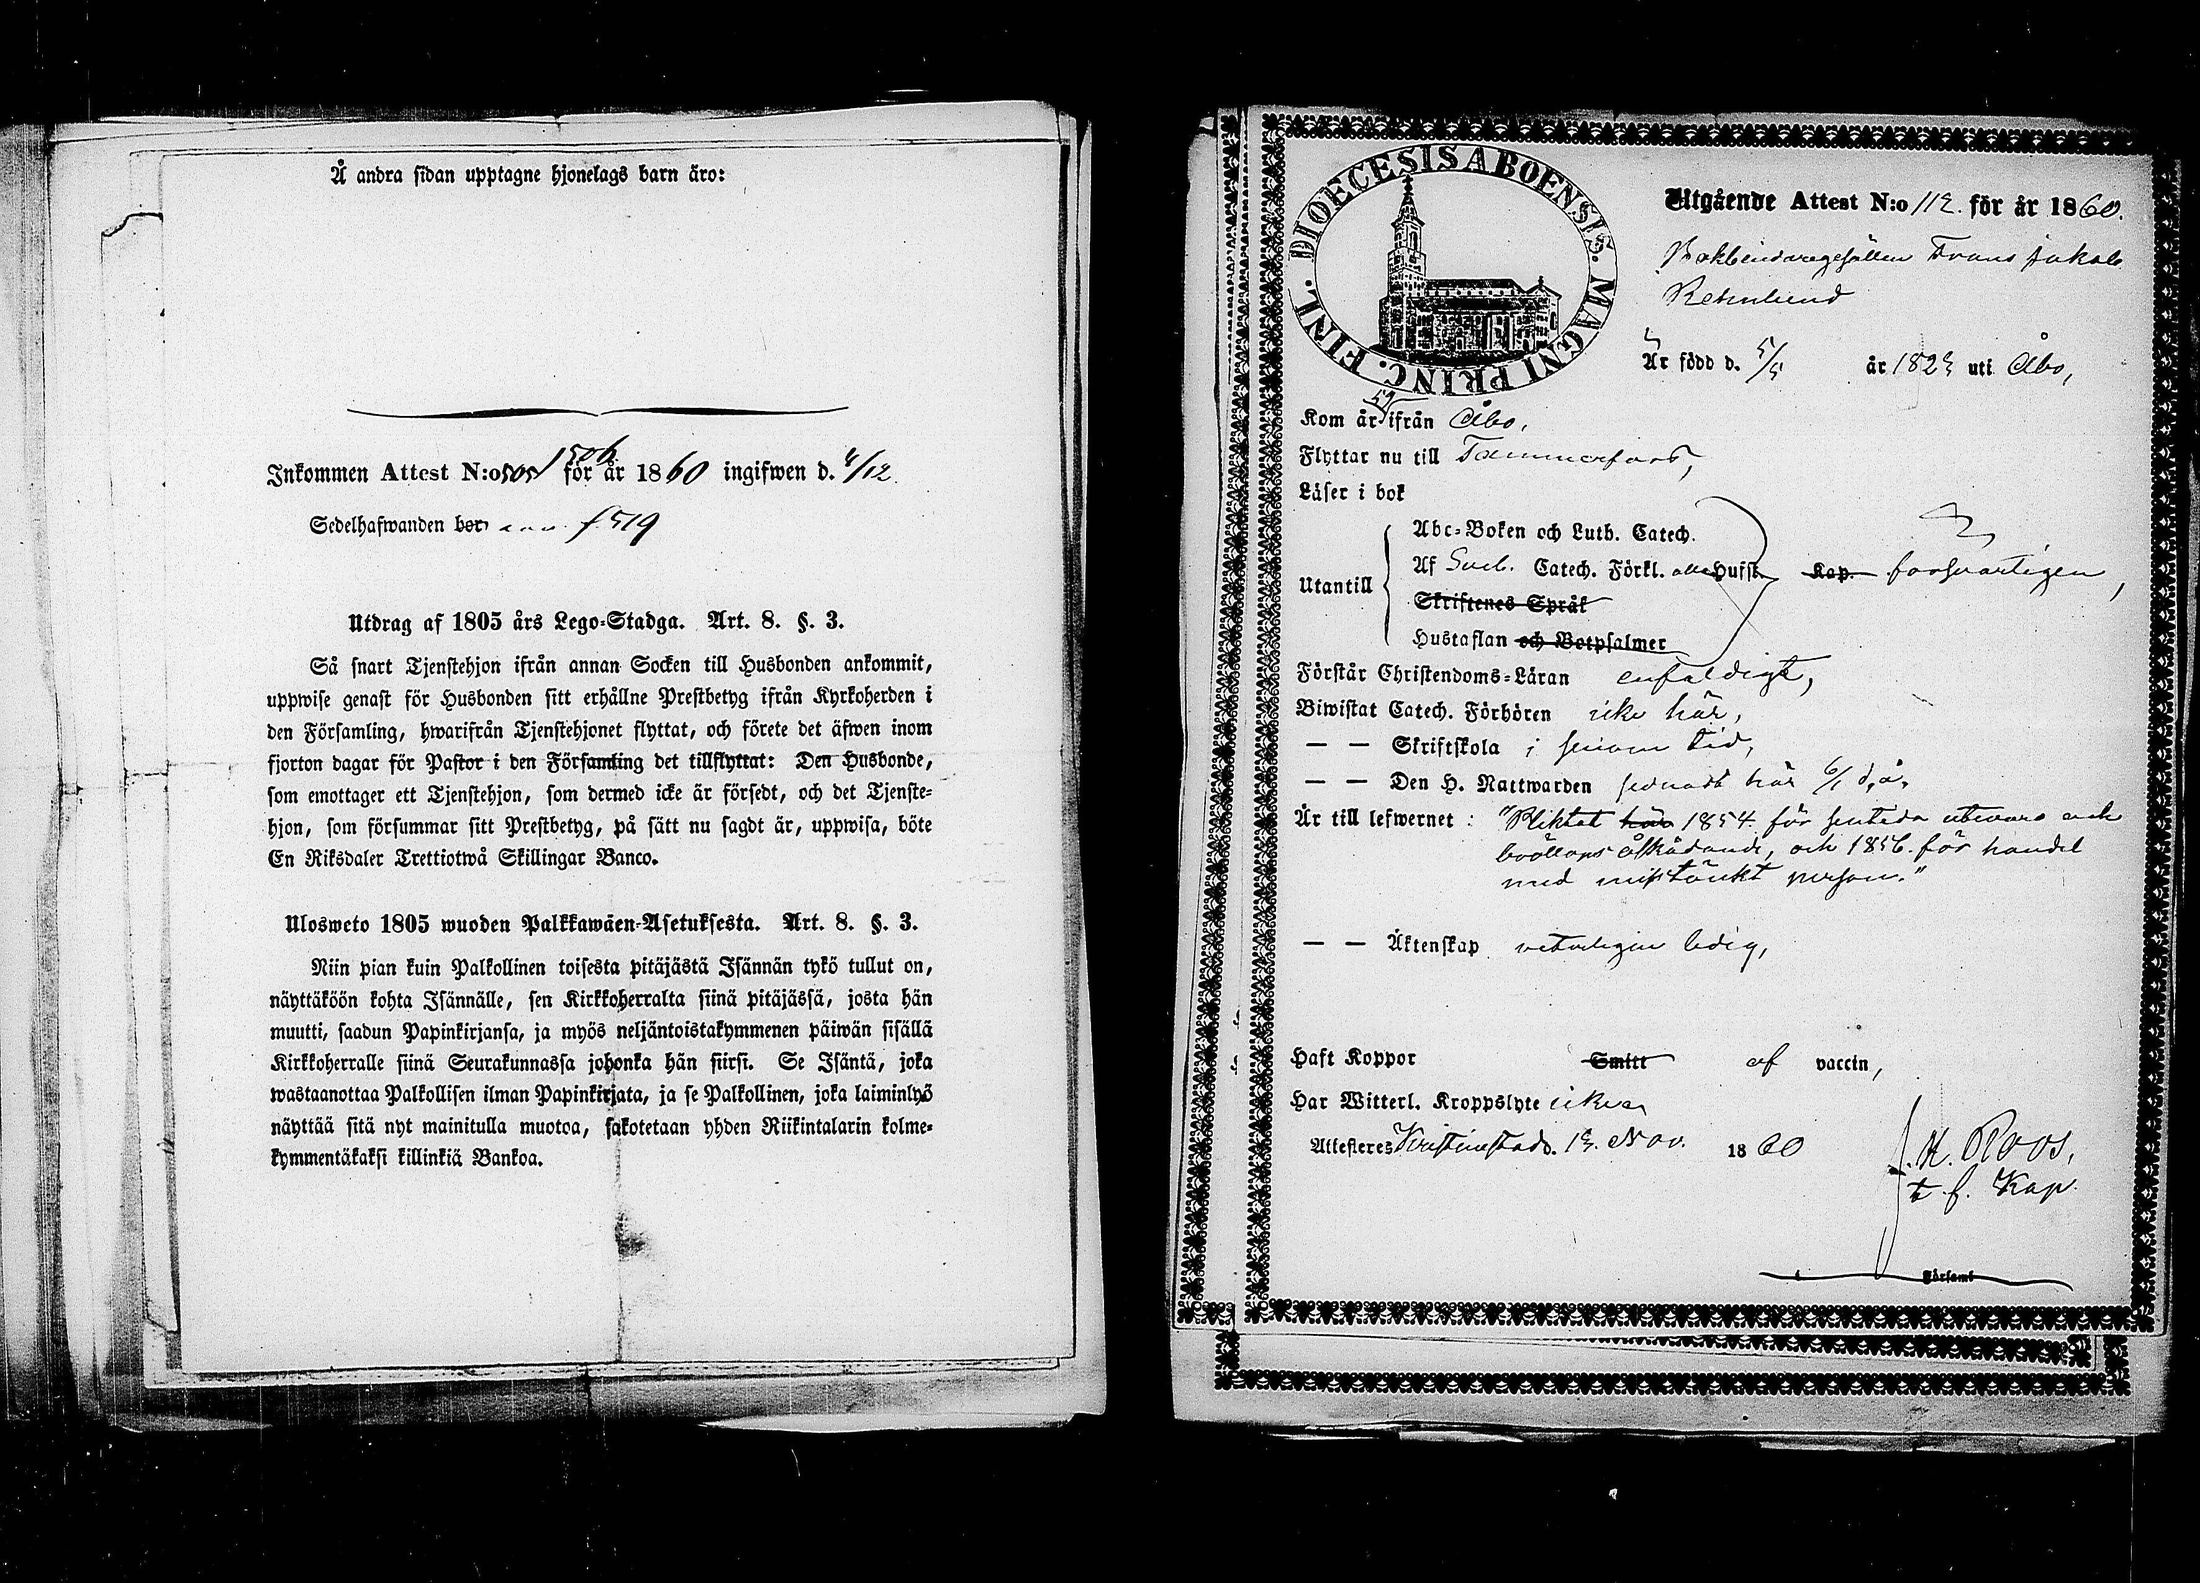 Å andra sidan upptagne hjonelags barn äro:
Inkommen Attest N:o 505 1506 för år 1860 ingifwen d. 4/12.
Sedelhafwanden bor f. 519
Utdrag af 1805 års Lego-Stadga. Art. 8. §. 3.
Så snart Tjenstehjon ifrån annan Socken till Husbonden ankommit,
uppwise genast för Husbonden sitt erhållne Prestbetyg ifrån Kyrkoherden i
den Församling, hwarifrån Tjenstehjonet flyttat, och förete det äfwen inom
fjorton dagar för Pastor i den Församling det tillflyttat: Den Husbonde,
som emottager ett Tjenstehjon, som dermed icke är försedt, och det Tjenste-
hjon, som försummar sitt Prestbetyg, på sätt nu sagdt är, uppwisa, böte
En Riksdaler Trettiotwå Skillingar Banco.
Ulosweto 1805 wuoden Palkkawäen-Asetuksesta. Art. 8. §. 3.
Niin pian kuin Palkollinen toisesta pitäjästä Isännän tykö tullut on,
näyttäköön kohta Isännälle, sen Kirkkoherralta siinä pitäjässä, josta hän
muutti, saadun Papinkirjansa, ja myös neljäntoistakymmenen päiwän sisällä
Kirkkoherralle siinä Seurakunnassa johonka hän siirsi. Se Isäntä, joka
wastaanottaa Palkollisen ilman Papinkirjata, ja se Palkollinen, joka laiminlyö
näyttää sitä nyt mainitulla muotoa, sakotetaan yhden Riikintalarin kolme-
kymmentäkaksi killinkiä Bankoa.
DIOECESIS ABOENSIS. MAGNI PRINC. FINL.
Utgående Attest N:o 112. för år 1860.
Bokbindaregesällen Frans Jakob
Renlund
Är född d. 5/5 år 1823 uti Åbo,
Kom år 59 ifrån Åbo,
Flyttar nu till Tammerfors,
Läser i bok
Abc-Boken och Luth. Catech.
Utantill
Af Sveb. Catech. Förkl. alla Hufst. Kap. försvarligen,
Skriftenes Språk
Hustaflan och Botpsalmer
Förstår Christendoms-Läran enfaldigt,
Biwistat Catech. Förhören icke här,
— — Skriftskola i sinom tid,
— — Den H. Nattwarden sednast här 6/1 d. å.
Är till lefwernet: "Pliktat här 1854 för sentida utevaro och
bröllops åskådande, och 1856. för handel
med misstänkt person."
— — Äktenskap veterligen ledig,
Haft Koppor Smitt af vaccin,
Har Witterl. Kroppslyte icke
Attesteres Kristinestad d. 13. Nov. 1860
K. Roos,
t. f. Kap.
Församl